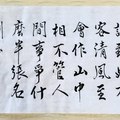 客清風至
會作山中
相不管人
間事爭什
麼半張名